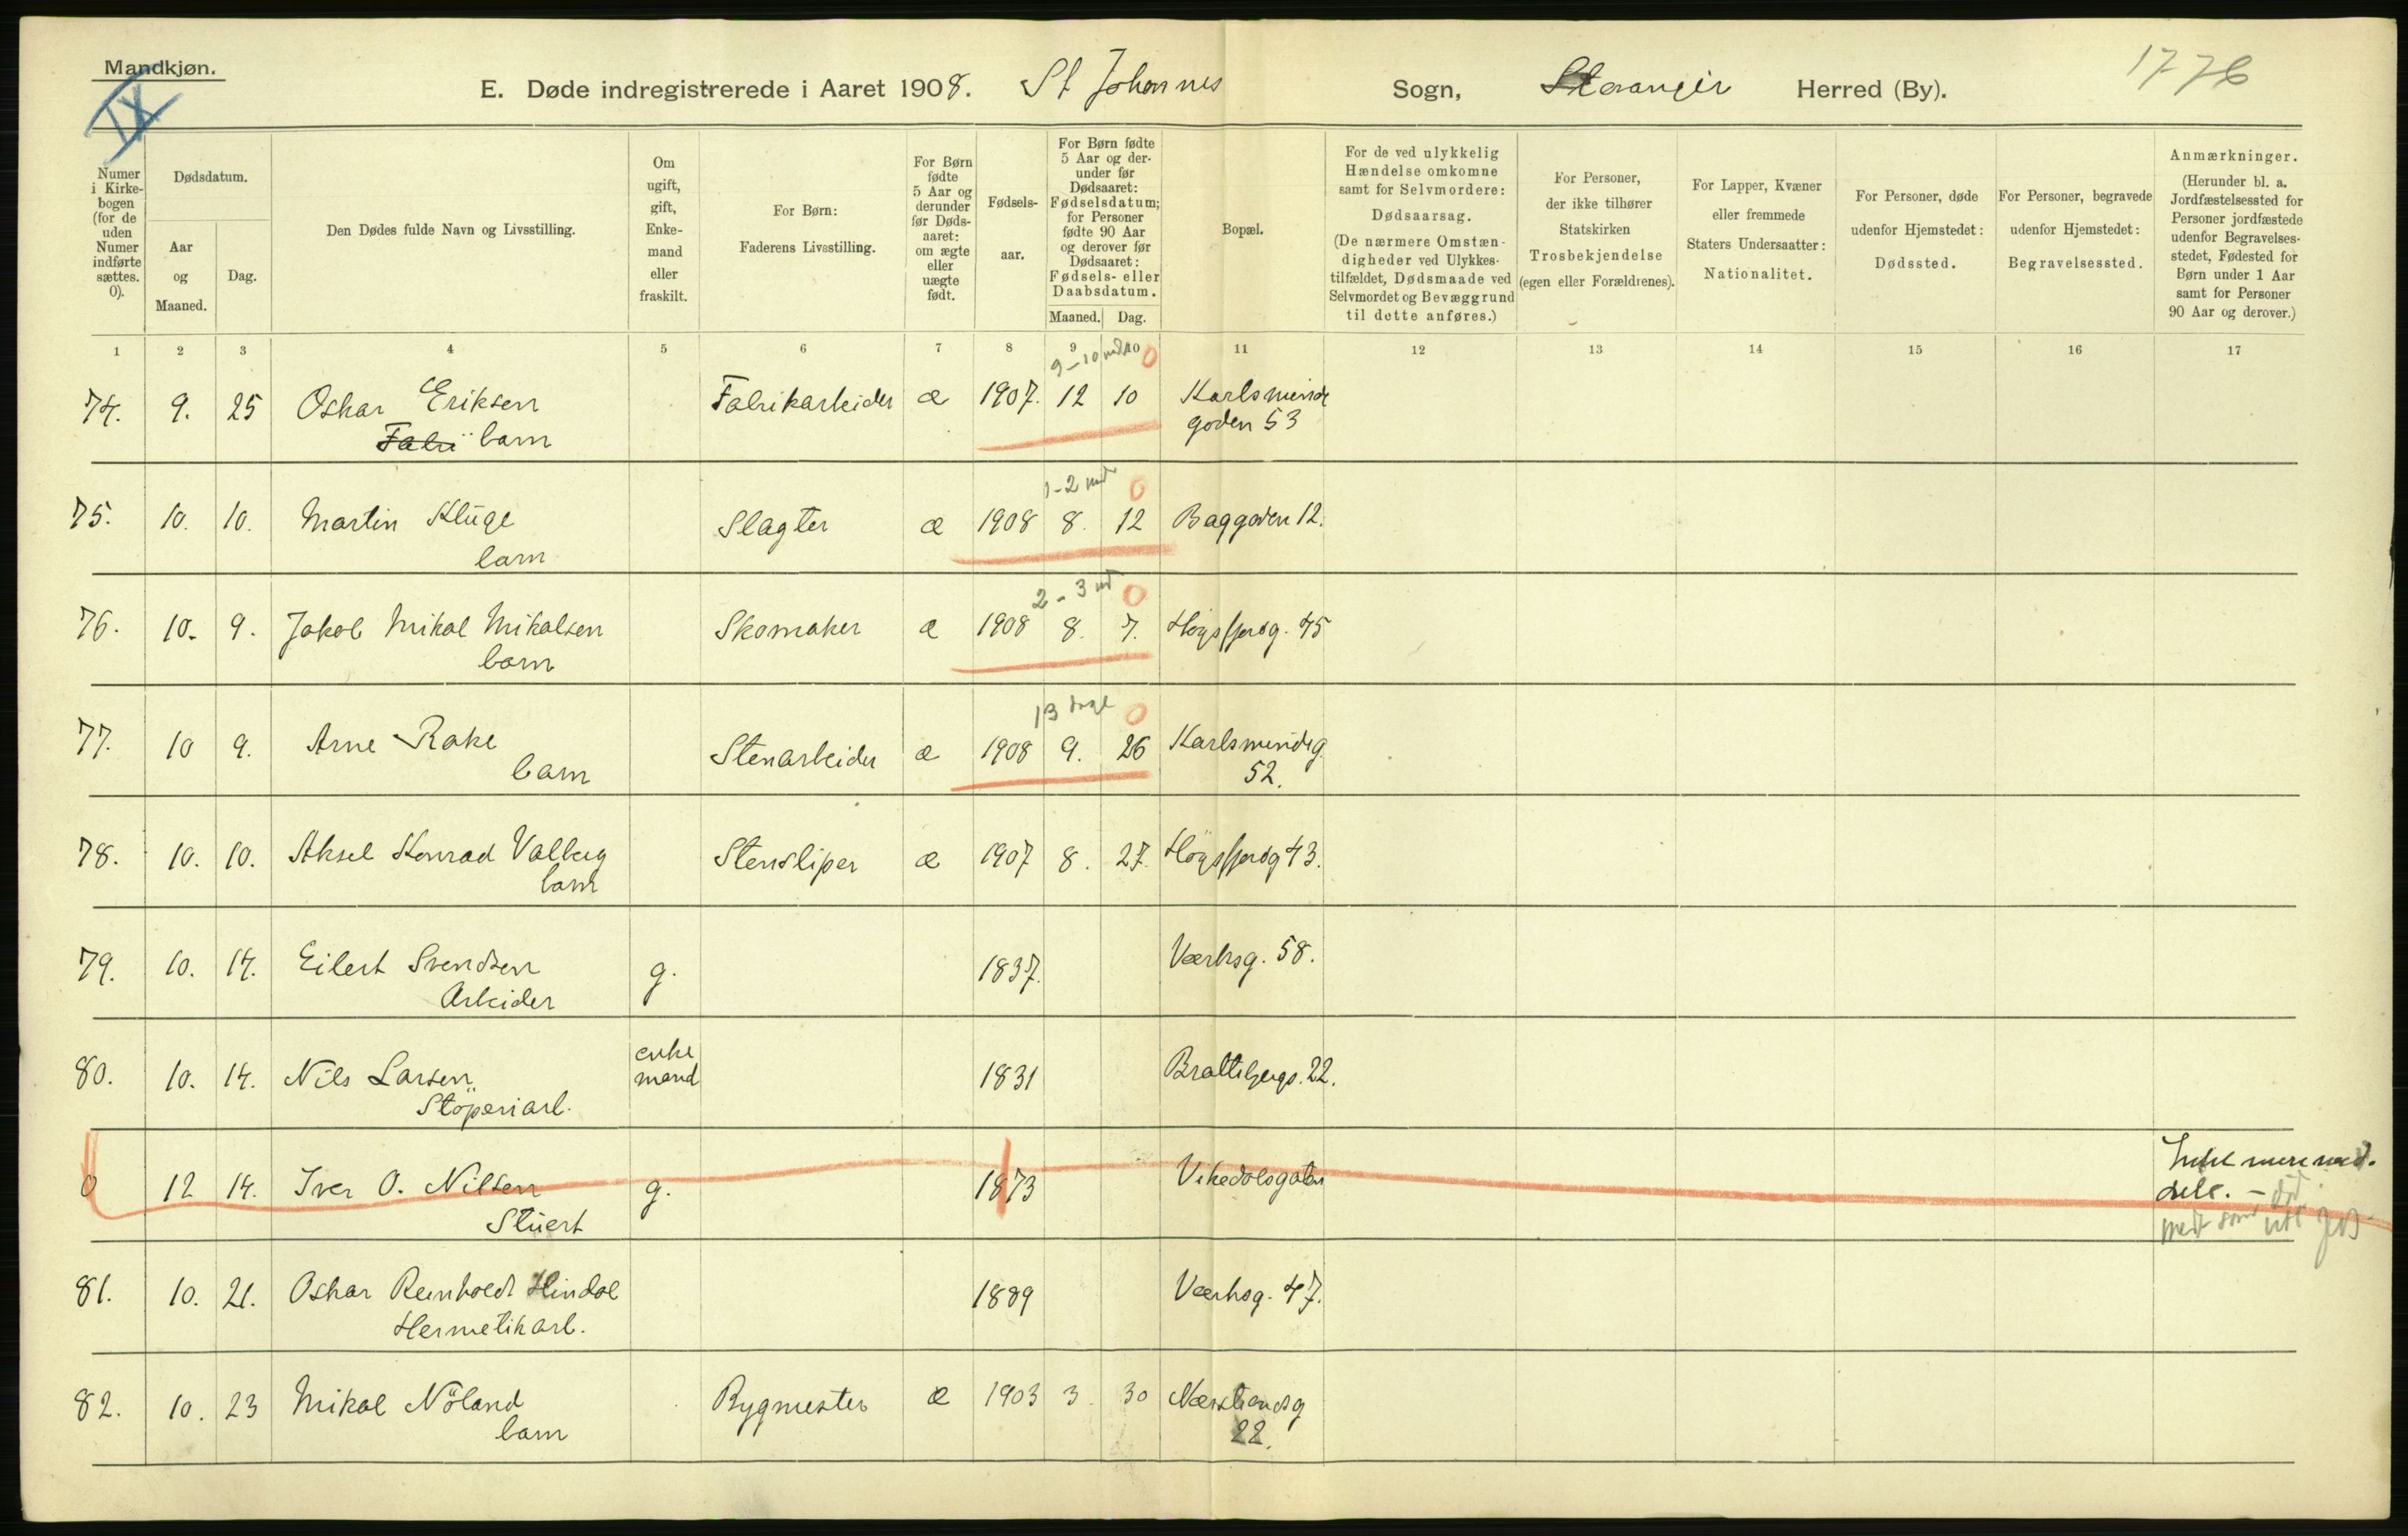 Mandkjøn.
IX
E. Døde indregistrerede i Aaret 1908. St Johannes Sogn, Stavanger Herred (By).
1776
Numer i Kirkebogen (for de uden Numer indførte sættes. 0).
Dødsdatum.
Aar og Maaned.
Dag.
Den Dødes fulde Navn og Livsstilling.
Om ugift, gift, Enkemand eller fraskilt.
For Børn: Faderens Livsstilling.
For Børn fødte 5 Aar og derunder før Dødsaaret: om ægte eller uægte født.
Fødselsaar.
For Børn fødte 5 Aar og derunder før Dødsaaret: Fødselsdatum; for Personer fødte 90 Aar og derover før Dødsaaret: Fødsels- eller Daabsdatum.
Maaned. Dag.
Bopæl.
For de ved ulykkelig Hændelse omkomne samt for Selvmordere: Dødsaarsag. (De nærmere Omstændigheder ved Ulykkestilfældet, Dødsmaade ved Selvmordet og Bevæggrund til dette anføres.)
For Personer, der ikke tilhører Statskirken Trosbekjendelse (egen eller Forældrenes).
For Lapper, Kvæner eller fremmede Staters Undersaatter: Nationalitet.
For Personer, døde udenfor Hjemstedet: Dødssted.
For Personer, begravede udenfor Hjemstedet: Begravelsessted.
Anmærkninger. (Herunder bl. a. Jordfæstelsessted for Personer jordfæstede udenfor Begravelsesstedet, Fødested for Børn under 1 Aar samt for Personer 90 Aar og derover.)
1 2 3 4 5 6 7 8 9 10 11 12 13 14 15 16 17
9-10 md 0
74. 9. 25 Oskar Eriksen Fabrikarbeider æ 1907. 12 10 Karlsminde
Fabri barn gaden 53
1-2 md 0
75. 10. 10. Martin Kluge Slagter æ 1908 8. 12 Baggaden 12.
barn
2-3 md 0
76. 10. 9. Jakob Mikal Mikalsen Skomaker æ 1908 8. 7. Høgsfjordg. 45
barn
13 dage 0
77. 10 9. Arne Rake Stenarbeider æ 1908 9. 26 Karlsmindeg
barn 52.
78. 10. 10. Aksel Konrad Valberg Stensliper æ 1907 8. 27. Høgsfjordg 43.
barn
79. 10. 14. Eilert Svendsen g. 1837. Værksg. 58.
Arbeider
80. 10. 14. Nils Larsen enke mand 1831 Brattebergs. 22.
Støperiarb.
0 12 14. Iver O. Nilsen g. 1873 Vikedalsgaten
Stuert
81. 10. 21. Oskar Reinholdt Hindal 1889 Værksg. 47.
Hermetikarb.
82. 10. 23 Mikal Nøland Bygmester æ 1903 3. 30 Nærstrandsg
barn 22.